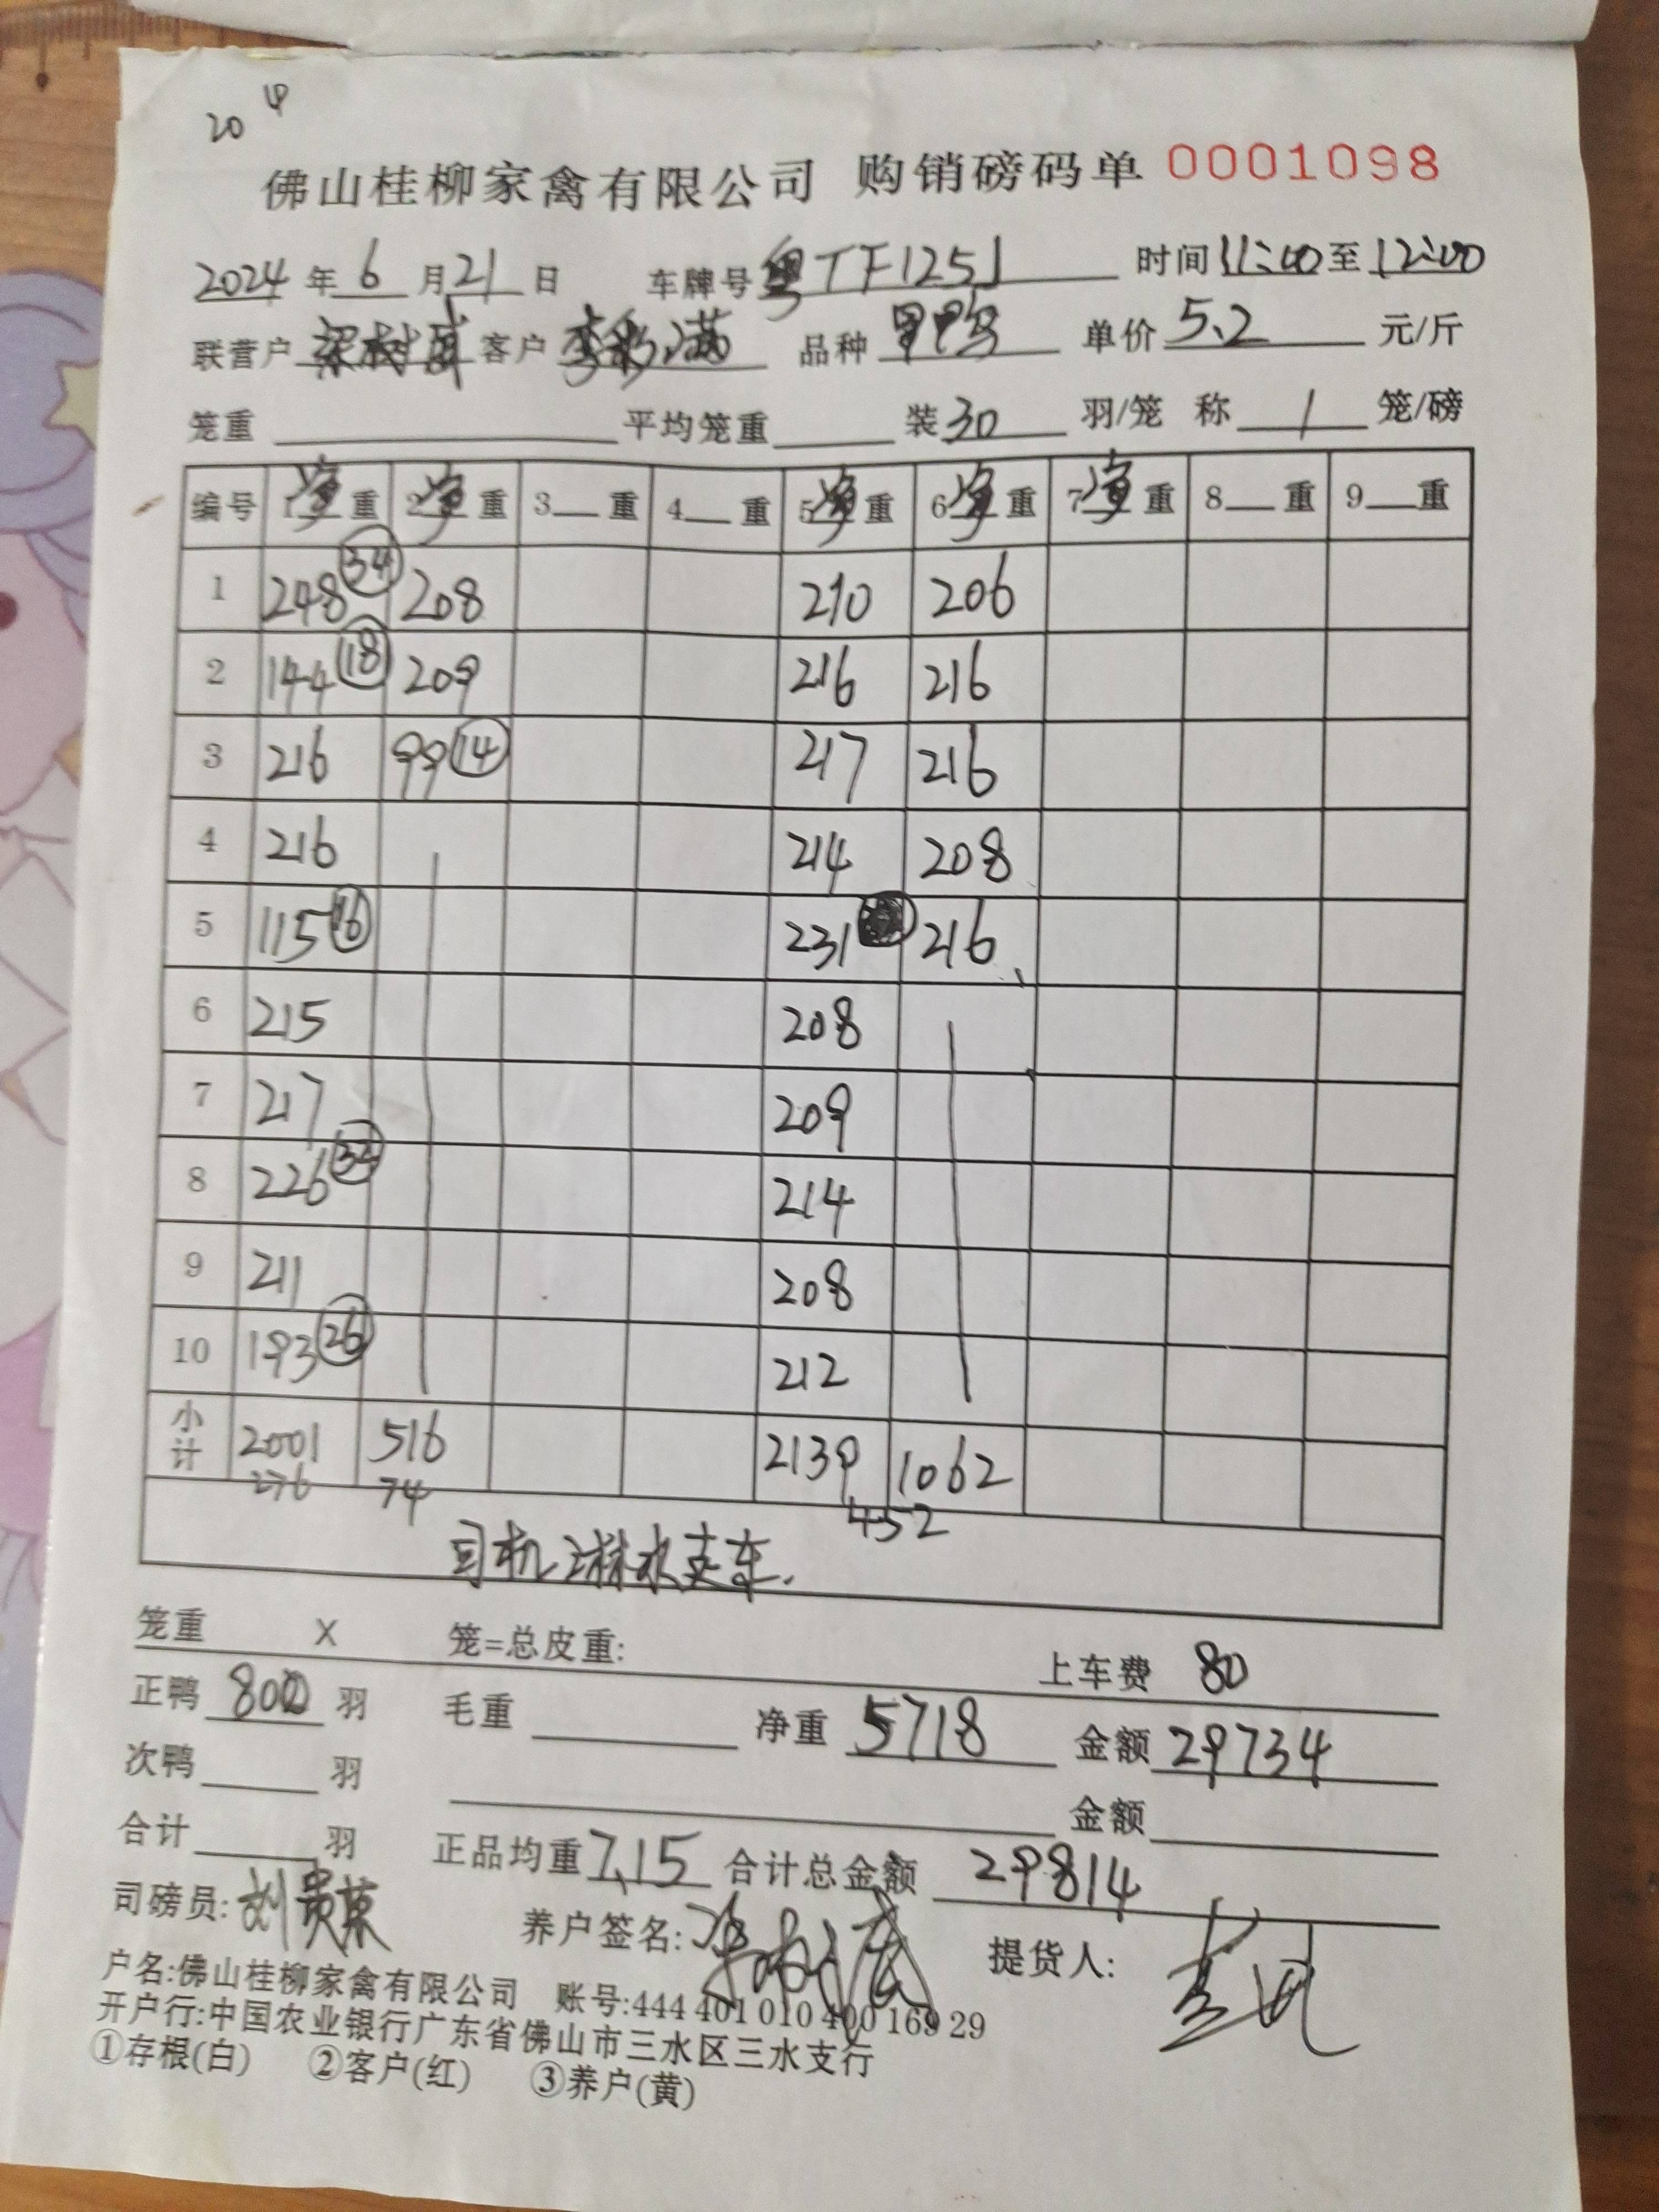 20 中
佛山桂柳家禽有限公司 购销磅码单 0001098
2024 年 6 月 21 日 车牌号 粤TF125J 时间 11:40 至 12:00
联营户 梁树 客户 李彩满 品种 单价 5.2 元/斤
笼重 平均笼重 装 30 羽/笼 称 1 笼/磅
编号 1净重 2净重 3 重 4 重 5净重 6净重 7净重 8 重 9 重
1 248 34 208 210 206
2 144 18 209 216 216
3 216 99 14 217 216
4 216 214 208
5 115 16 231 216
6 215 208
7 217 209
8 226 32 214
9 211 208
10 193 26 212
小计 2001 516 2139 1062
276 74 452
司机淋水洗车.
笼重 X 笼=总皮重: 上车费 80
正鸭 800 羽 毛重 净重 5718 金额 29734
次鸭 羽 金额
合计 羽 正品均重 7.15 合计总金额 29814
司磅员: 刘贵 养户签名: 提货人:
户名:佛山桂柳家禽有限公司 账号:444 401 010 400 169 29
开户行:中国农业银行广东省佛山市三水区三水支行
①存根(白) ②客户(红) ③养户(黄)